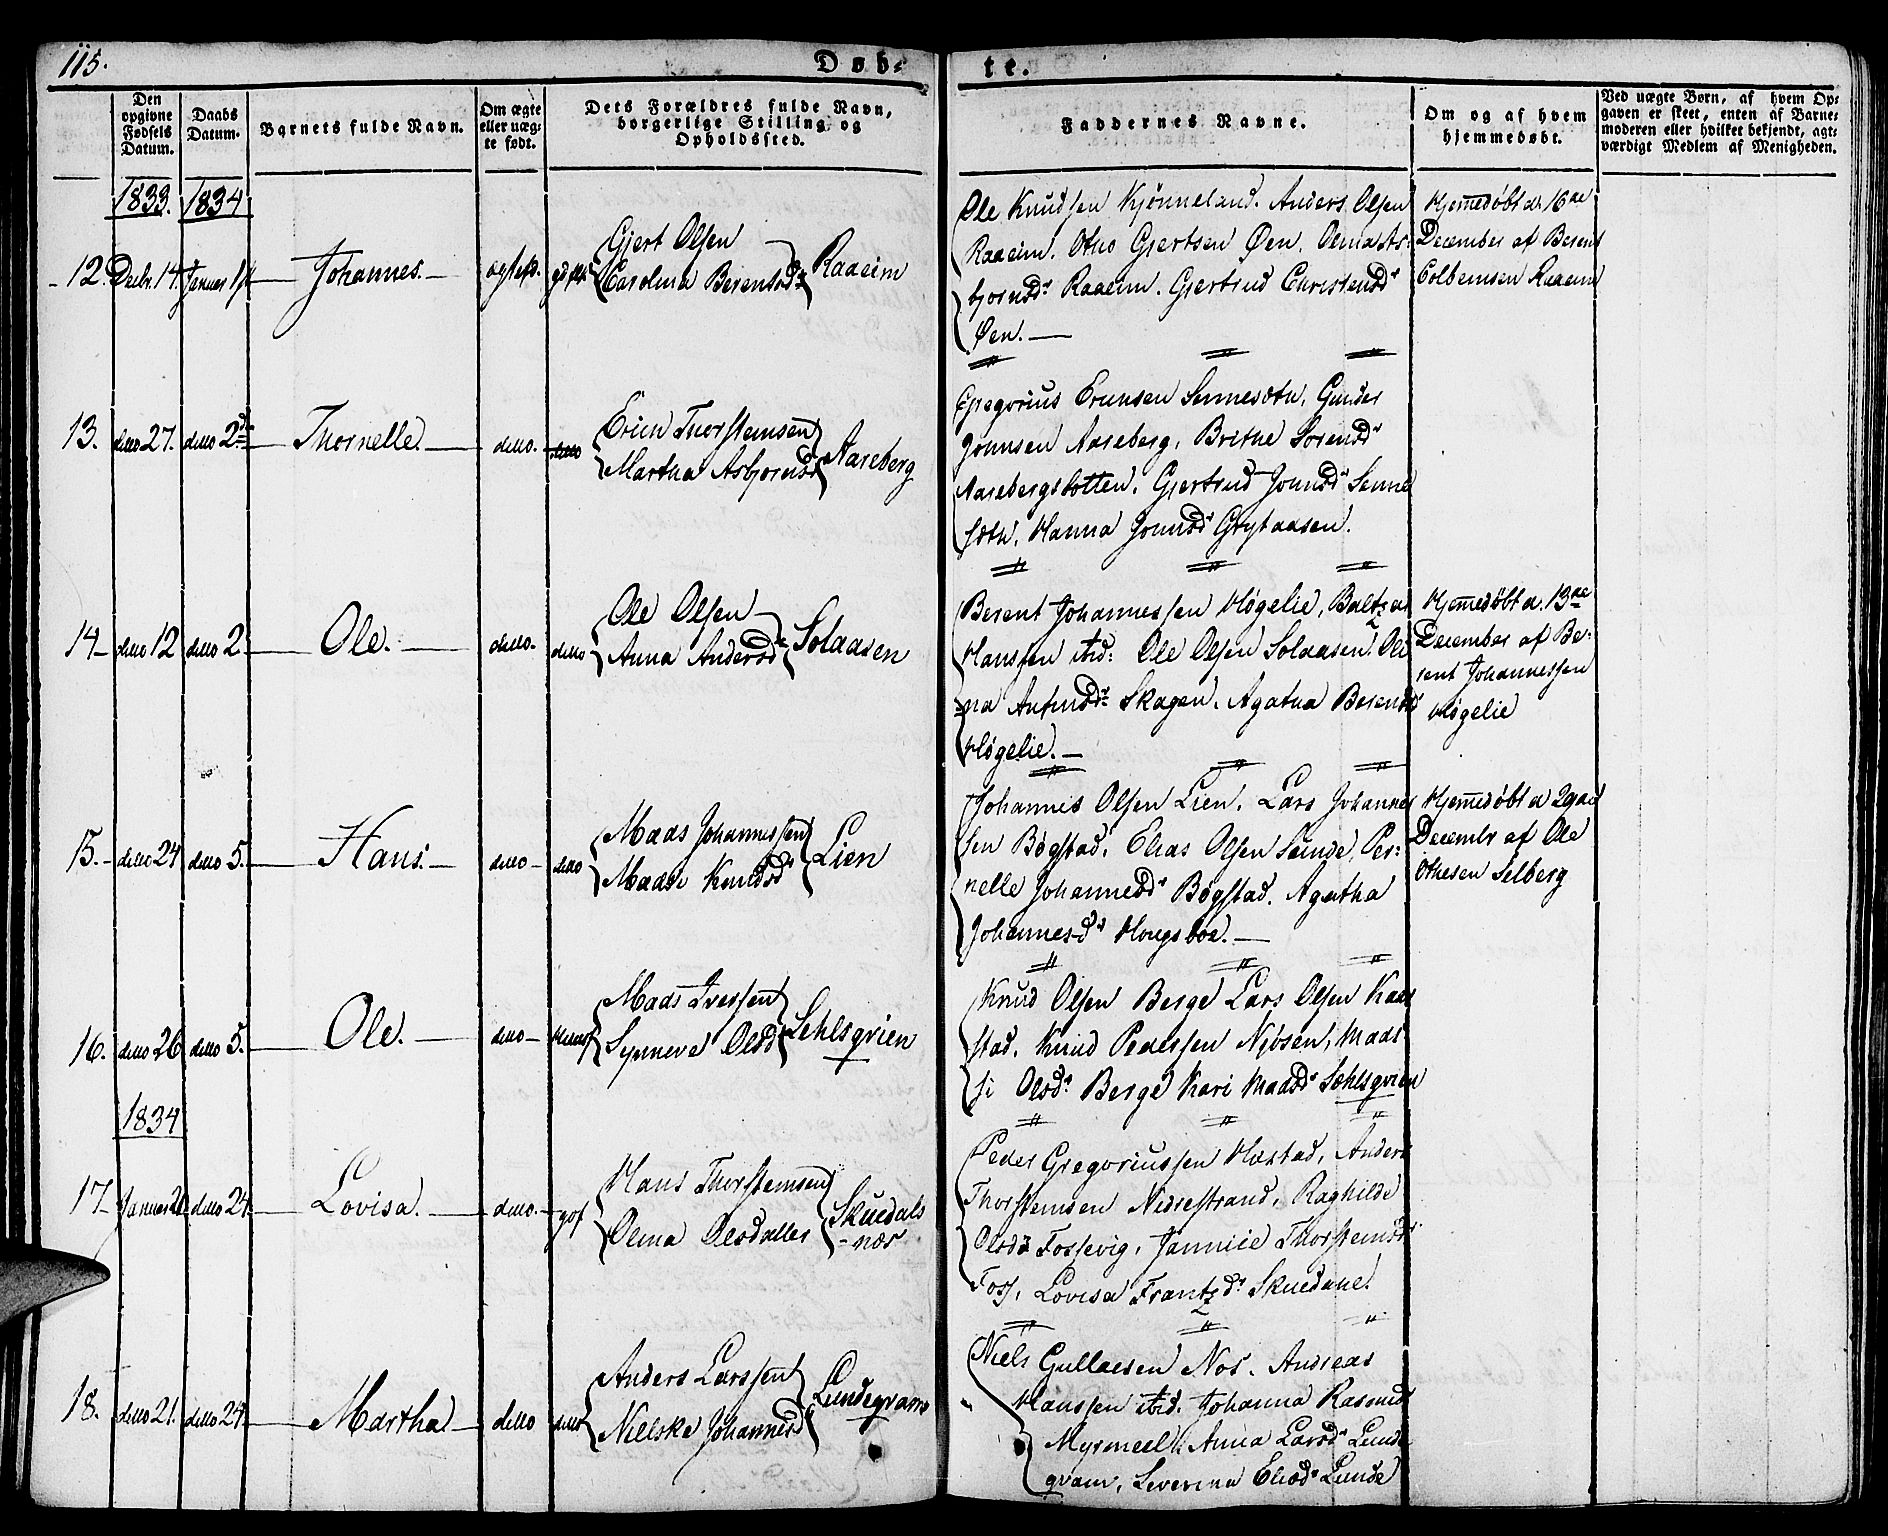 115.
Døb-
te.
Den opgivne Fødsels Datum.
Daabs Datum.
Barnets fulde Navn.
Om ægte eller uægte født.
Dets Forældres fulde Navn, borgerlige Stilling og Opholdssted.
Faddernes Navne.
Om og af hvem hjemmedøbt.
Ved uægte Børn, af hvem Opgaven er skeet, enten af Barnemoderen eller hvilket bekjendt, agtværdigt Medlem af Menigheden.
1833. 1834
12. Decbr. 14. Januar
Johannes.
Gjert Olsen
Carolina Berensd. Raaeim
Ole Knudsen Kjønneland. Anders Olsen
Raaeim. Otho Gjertsen Øen.
Raaeim. Gjertrud Christensdr
Øen.
Hjemedøbt d. 16de
December af Berent
Colbensen Raaeim
13. ditto 27. ditto 2
Thornelle. ditto.
Erich Thorsteinsen
Martha Asbjornsd Aareberg
Gregorius Ericksen Sennesæth, Gunder
Johnsen Aareberg, Brithe Sorensdr
Aarebergsbotten. Gjertrud Johnsdr Senne
sæth, Hanna Johnsdr Grytaasen.
14 ditto 12 ditto 2
Ole. ditto. ditto
Ole Olsen
Anna Andersdr Solaasen
Berent Johannessen Høgelie, Baltzer
Hanssen ibid: Ole Olsen Solaasen. Oli
na Skagen. Agatha Berensd
Høgelie.
Hjemedøbt d. 13de
December af Be-
rent Johannessen
Høgelie
15. ditto 24 ditto 5.
Hans. ditto ditto
Mads Johannessen
Madsi Knudsdr Lien
Johannes Olsen Lien. Lars Johannes
sen Bøgstad. Elias Olsen Sunde. Per-
nelle Johannesdr Bøgstad. Agatha
Johannesdr Hougsboe.
Hjemedøbt d 29de
Decembr af Ole
Othesen Selberg
16. ditto 26 ditto 5.
Ole. ditto
Mads Iversen
Synneve Olsd Sehlsgvien
Knud Olsen Berge Lars Olsen
stad. Knud Pedersen Njøsen, Mad
si Olsdr Berge Kari Madsdr Sæhlsgvien
1834
17 Januar ditto 24.
Lovisa. ditto.
Hans Thorsteinsen
Olina Olsdatter
Skuedals
næs
Peder Gregoriussen Hæstad, Anders
Thorsteinsen Nedrestrand, Raghilde
Olsdr Fossevig, Jannice Thorsteinsdr
Foss, Lovisa Frantzdr Skuedane.
18. ditto 21. ditto 24.
Martha ditto ditto
Anders Larssen
Nielske Johannesd Lundeqvam
Niels Gullaesen Nos. Andreas
Hanssen ibid. Johanna Rasmus
Myrmeel. Anna Larsdr Lunde
qvam, Severina Eliædr Lunde